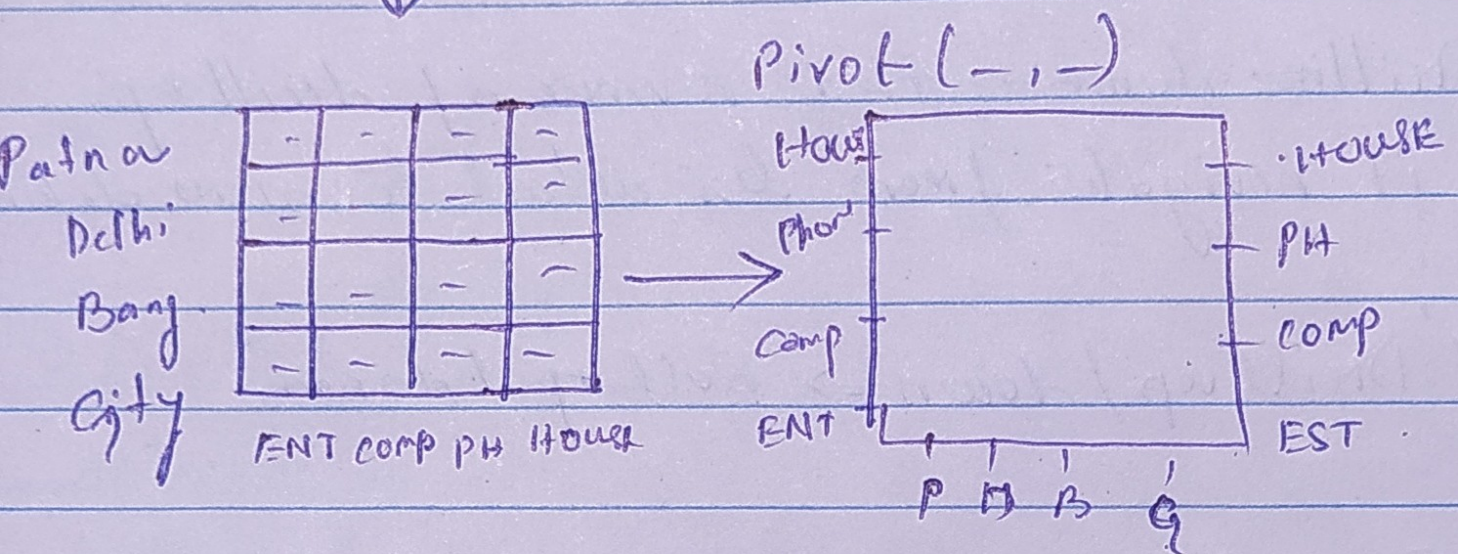 Pivot (-, -)
Patna
Delhi
Bang
ENT COMP PH House
House
Phon
Comp
ENT
HOUSE
PH
COMP
EST
P D B G